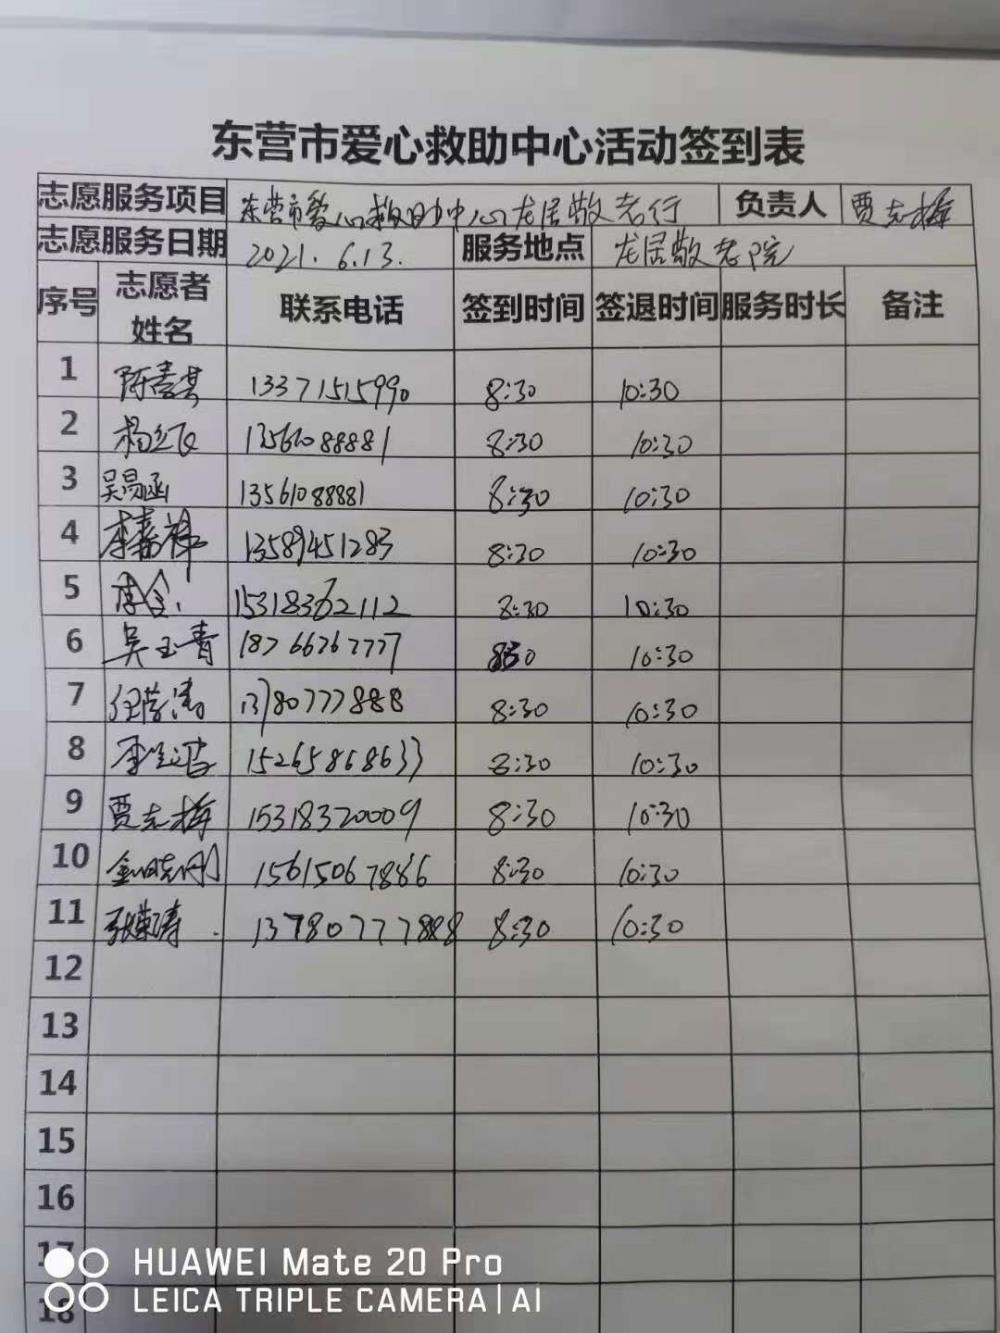 东营市爱心救助中心活动签到表
志愿服务项目 东营市爱心救助中心龙居敬老行 负责人 贾志梅
志愿服务日期 2021.6.13. 服务地点 龙居敬老院
序号 志愿者姓名 联系电话 签到时间 签退时间 服务时长 备注
1 13371515990 8:30 10:30
2 13561088881 8:30 10:30
3 吴易函 13561088881 8:30 10:30
4 13589451283 8:30 10:30
5 15318362112 8:30 10:30
6 吴玉青 18766767777 830 10:30
7 13780777888 8:30 10:30
8 15265868633 8:30 10:30
9 贾志梅 15318320009 8:30 10:30
10 金晓刚 15615067886 8:30 10:30
11 13780777888 8:30 10:30
12
13
14
15
16
17
18
HUAWEI Mate 20 Pro
LEICA TRIPLE CAMERA | AI